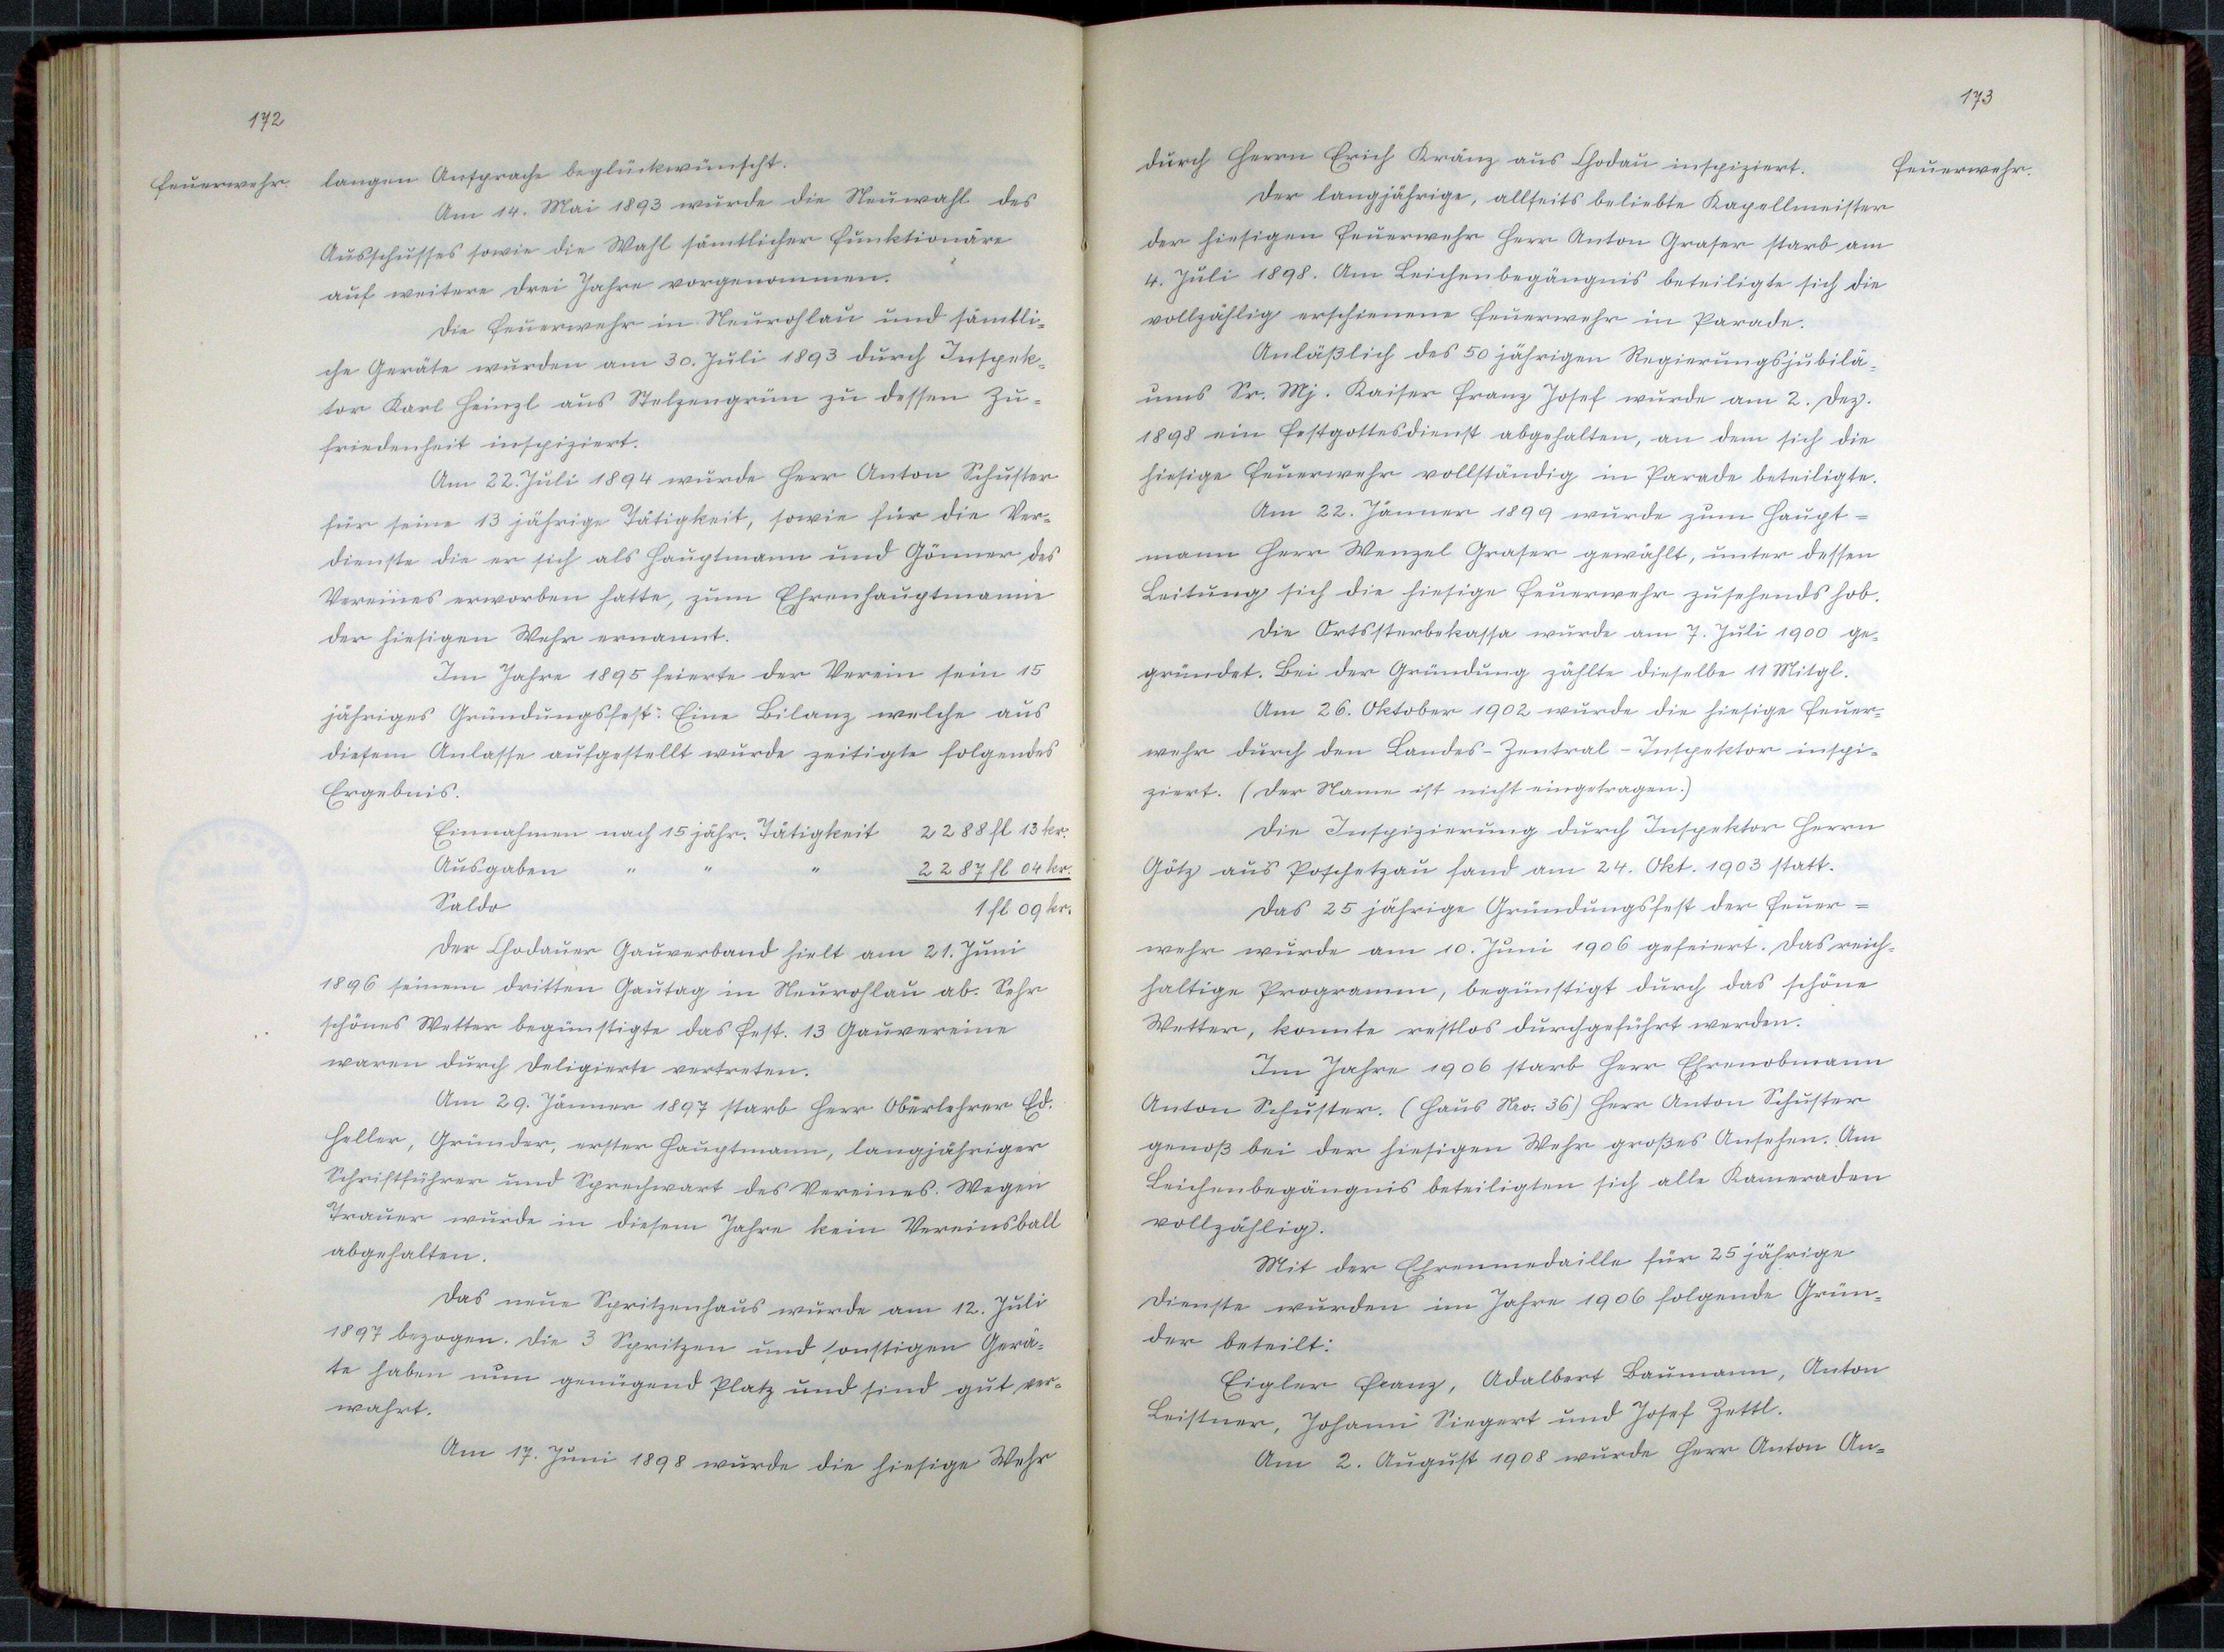 172
Feuerwehr.
langen Ansprache beglückwünscht.
Am 14. Mai 1893 wurde die Neuwahl des
Ausschusses sowie die Wahl sämtlicher Funktionäre
auf weitere drei Jahre vorgenommen.
Die Feuerwehr in Neurohlau und sämtli-
che Geräte wurden am 30. Juli 1893 durch Inspek-
tor Karl Heinzl aus Stelzengrün zu dessen Zu-
friedenheit inspiziert.
Am 22. Juli 1894 wurde Herr Anton Schuster
für seine 13 jährige Tätigkeit, sowie für die Ver-
dienste die er sich als Hauptmann und Gönner des
Vereines erworben hatte, zum Ehrenhauptmanne
der hiesigen Wehr ernannt.
Im Jahre 1895 feierte der Verein sein 15
jähriges Gründungsfest. Eine Bilanz welche aus
diesem Anlasse aufgestellt wurde zeitigte folgendes
Ergebnis.
Einnahmen nach 15 jähr. Tätigkeit 2288 fl 13 kr.
Ausgaben " " " 2287 fl 04 kr.
Saldo 1 fl 09 kr.
Der Chodauer Gauverband hielt am 21. Juni
1896 seinem dritten Gautag in Neurohlau ab. Sehr
schönes Wetter begünstigte das Fest. 13 Gauvereine
waren durch Deligierte vertreten.
Am 29. Jänner 1897 starb Herr Oberlehrer Ed.
Heller, Gründer, erster Hauptmann, langjähriger
Schriftführer und Sprechwart des Vereines. Wegen
Trauer wurde in diesem Jahre kein Vereinsball
abgehalten.
Das neue Spritzenhaus wurde am 12. Juli
1897 bezogen. Die 3 Spritzen und sonstigen Gerä-
te haben nun genügend Platz und sind gut ver-
wahrt.
Am 17. Juni 1898 wurde die hiesige Wehr
173
Feuerwehr.
durch Herrn Erich Kränz aus Chodau inspiziert.
Der langjährige, allseits beliebte Kapellmeister
der hiesigen Feuerwehr Herr Anton Graser starb am
4. Juli 1898. Am Leichenbegängnis beteiligte sich die
vollzählig erschienene Feuerwehr in Parade.
Anläßlich des 50 jährigen Regierungsjubilä-
ums Sr. Mj. Kaiser Franz Josef wurde am 2. Dez.
1898 ein Festgottesdienst abgehalten, an dem sich die
hiesige Feuerwehr vollständig in Parade beteiligte.
Am 22. Jänner 1899 wurde zum Haupt=
mann Herr Wenzel Graser gewählt, unter dessen
Leitung sich die hiesige Feuerwehr zusehends hob.
Die Ortssterbekassa wurde am 7. Juli 1900 ge-
gründet. Bei der Gründung zählte dieselbe 11 Mitgl.
Am 26. Oktober 1902 wurde die hiesige Feuer-
wehr durch den Landes-Zentral-Inspektor inspi-
ziert. (Der Name ist nicht eingetragen.)
Die Inspizierung durch Inspektor Herrn
Götz aus Poschetzau fand am 24. Okt. 1903 statt.
Das 25 jährige Gründungsfest der Feuer=
wehr wurde am 10. Juni 1906 gefeiert. Das reich-
haltige Programm, begünstigt durch das schöne
Wetter, konnte restlos durchgeführt werden.
Im Jahre 1906 starb Herr Ehrenobmann
Anton Schuster. (Haus Nro. 36) Herr Anton Schuster
genoß bei der hiesigen Wehr großes Ansehen. Am
Leichenbegängnis beteiligten sich alle Kameraden
vollzählig.
Mit der Ehrenmedaille für 25 jährige
Dienste wurden im Jahre 1906 folgende Grün-
der beteilt:
Eigler Franz, Adalbert Baumann, Anton
Leistner, Johann Siegert und Josef Zettl.
Am 2. August 1908 wurde Herr Anton An-